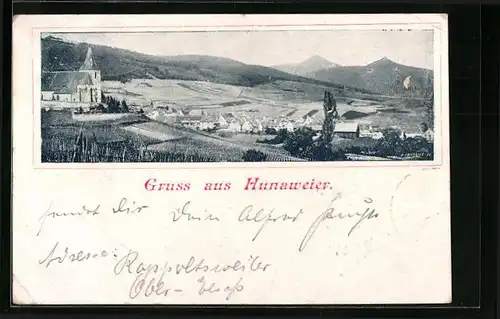 Gruss aus Hunaweier.
sendet Dir Dein Alfred
Adresse: Rappoltsweiler
Ober-